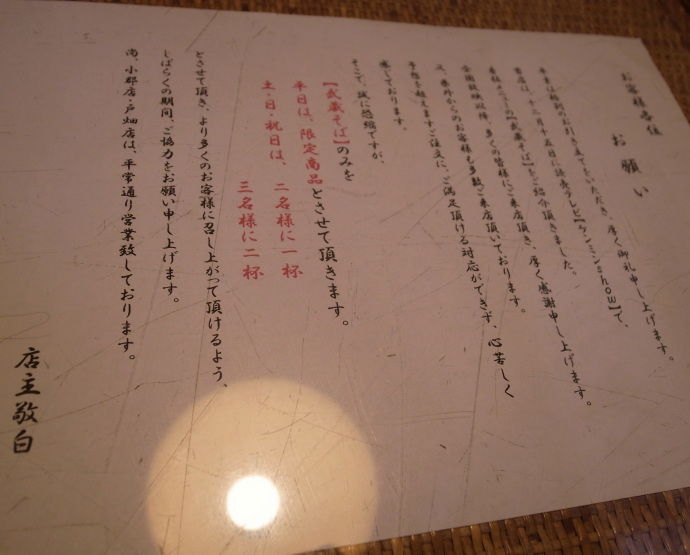 お客様各位
お願い
平素は格別のお引き立てをいただき、厚く御礼申し上げます。
当店は、十二月十五日に読売テレビ【ケンミンshow】で、
看板メニューの【武蔵そば】をご紹介頂きました。
全国放映以降、多くの皆様にご来店頂き、厚く感謝申し上げます。
又、県外からのお客様も多数ご来店頂いております。
予想を超えますご注文に、ご満足頂ける対応ができず、心苦しく
感じております。
そこで、誠に恐縮ですが、
【武蔵そば】のみを
平日は、限定商品とさせて頂きます。
土・日・祝日は、二名様に一杯
三名様に二杯
とさせて頂き、より多くのお客様に召し上がって頂けるよう、
しばらくの期間、ご協力をお願い申し上げます。
尚、小郡店・戸畑店は、平常通り営業致しております。
店主敬白